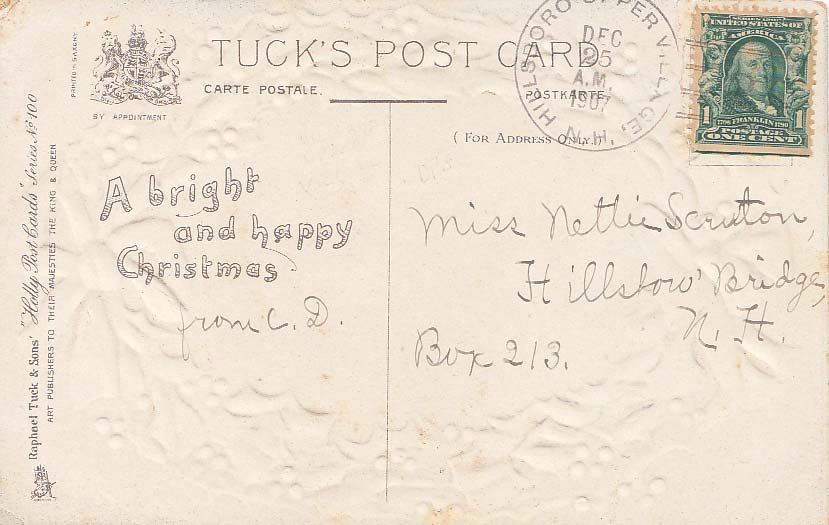 TUCK'S POST CARD
CARTE POSTALE.
POSTKARTE.
(FOR ADDRESS ONLY.)
BY APPOINTMENT
PRINTED IN SAXONY
Raphael Tuck & Sons' "Holly Post Cards" Series No 100
ART PUBLISHERS TO THEIR MAJESTIES THE KING & QUEEN
HILLSBORO UPPER VILLAGE,
DEC
25
A.M.
1907
N.H.
SERIES 1902
UNITED STATES OF
AMERICA
1706 FRANKLIN 1790
1 POSTAGE 1
ONE CENT
A bright
and happy
Christmas
from C. D.
Miss Nettie Scruton,
Hillsboro' Bridge,
N. H.
Box 213.